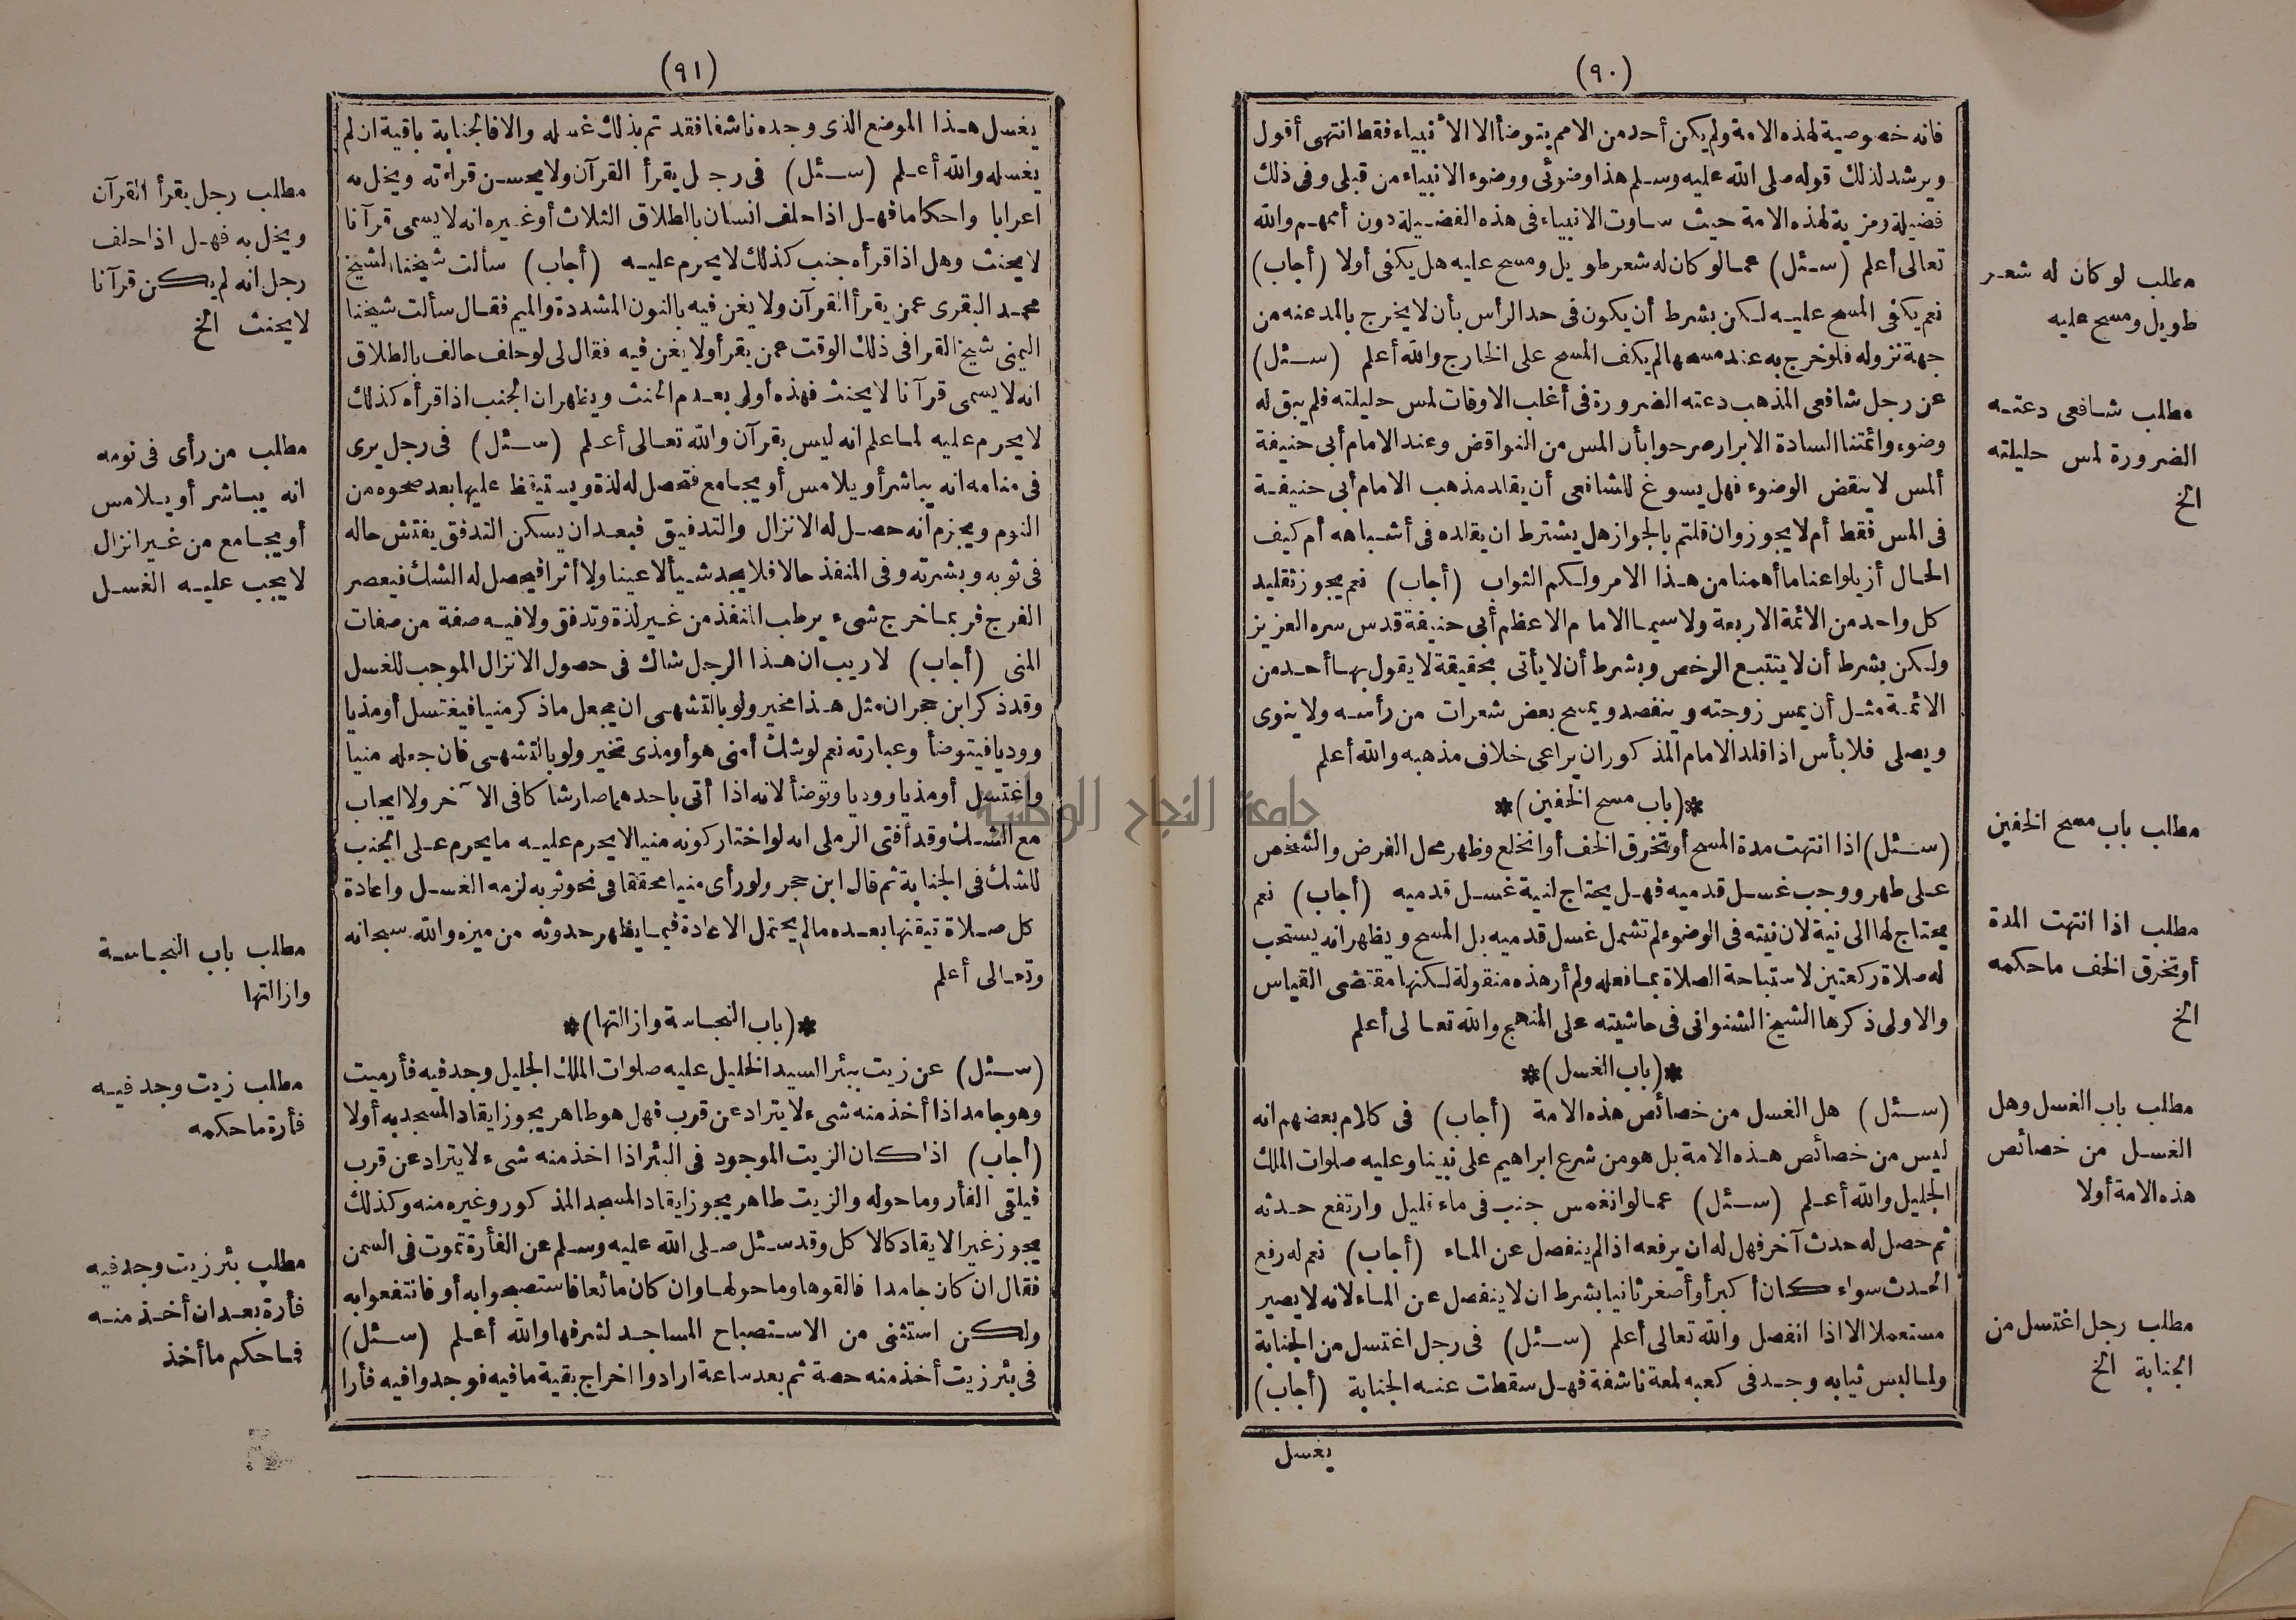 (٩٠)
فانه خصوصية لهذه الامة ولم يكن أحد من الامم يتوضأ الا الأنبياء فقط انتهى أقول
ويرشد لذلك قوله صلى الله عليه وسلم هذا وضوئى ووضوء الانبياء من قبلى وفى ذلك
فضيلة ومزية لهذه الامة حيث ساوت الانبياء فى هذه الفضيلة دون أممهم والله
تعالى أعلم (سئل) عمالو كان له شعر طويل ومسح عليه هل يكفى أولا (أجاب)
نعم يكفى المسح عليه لكن بشرط أن يكون فى حد الرأس بأن لا يخرج بالمد عنه من
جهة نزوله فلو خرج به عند مسحها لم يكف المسح على الخارج والله أعلم (سئل)
عن رجل شافعى المذهب دعته الضرورة فى أغلب الاوقات لمس حليلته فلم يبق له
وضوء وائمتنا السادة الابرار صرحوا بأن المس من النواقض وعند الامام أبى حنيفة
ألمس لا ينقض الوضوء فهل يسوغ للشافعى أن يقلد مذهب الامام أبى حنيفة
فى المس فقط أم لا يجوز وان قلتم بالجواز هل يشترط ان يقلده فى أشباهه أم كيف
الحال أزيلوا عنا ما أهمنا من هذا الامر ولكم الثواب (أجاب) نعم يجوز تقليد
كل واحد من الائمة الاربعة ولا سيما الامام الاعظم أبى حنيفة قدس سره العزيز
ولكن بشرط أن لا يتتبع الرخص وبشرط أن لا يأتى بحقيقة لا يقول بها أحد من
الائمة مثل أن يمس زوجته وينفصد ويمسح بعض شعرات من رأسه ولا ينوى
ويصلى فلا بأس اذا قلد الامام المذكور ان يراعى خلاف مذهبه والله أعلم
*(باب مسح الخفين)*
(سئل) اذا انتهت مدة المسح أو تخرق الخف أو انخلع وظهر محل الفرض والشخص
على طهر ووجب غسل قدميه فهل يحتاج لنية غسل قدميه (أجاب) نعم
يحتاج لها الى نية لان نيته فى الوضوء لم تشمل غسل قدميه بل المسح ويظهر انه يستحب
له صلاة ركعتين لاستباحة الصلاة بما فعله ولم أر هذه منقولة لكنها مقتضى القياس
والاولى ذكرها الشيخ الشنوانى فى حاشيته على المنهج والله تعالى أعلم
*(باب الغسل)*
(سئل) هل الغسل من خصائص هذه الامة (أجاب) فى كلام بعضهم انه
ليس من خصائص هذه الامة بل هو من شرع ابراهيم على نبينا وعليه صلوات الملك
الجليل والله أعلم (سئل) عمالو انغمس جنب فى ماء قليل وارتفع حدثه
ثم حصل له حدث آخر فهل له ان يرفعه اذا لم ينفصل عن الماء (أجاب) نعم له رفع
الحدث سواء كان أكبر أو أصغر ثانيا بشرط ان لا ينفصل عن الماء لانه لا يصير
مستعملا الا اذا انفصل والله تعالى أعلم (سئل) فى رجل اغتسل من الجنابة
ولما لبس ثيابه وجد فى كعبه لمعة ناشفة فهل سقطت عنه الجنابة (أجاب)
يغسل
مطلب لو كان له شعر
طويل ومسح عليه
مطلب شافعى دعته
الضرورة لمس حليلته
الخ
مطلب باب مسح الخفين
مطلب اذا انتهت المدة
أو تخرق الخف ما حكمه
الخ
مطلب باب الغسل وهل
الغسل من خصائص
هذه الامة أولا
مطلب رجل اغتسل من
الجنابة الخ
(٩١)
يغسل هذا الموضع الذى وجده ناشفا فقد تم بذلك غسله والا فالجنابة باقية ان لم
يغسله والله أعلم (سئل) فى رجل يقرأ القرآن ولا يحسن قراءته ويخل به
اعرابا واحكاما فهل اذا حلف انسان بالطلاق الثلاث أو غيره انه لا يسمى قرآنا
لا يحنث وهل اذا قرأه جنب كذلك لا يحرم عليه (أجاب) سألت شيخنا الشيخ
محمد البقرى عمن يقرأ القرآن ولا يغن فيه بالنون المشددة والميم فقال سألت شيخنا
اليمنى شيخ القرا فى ذلك الوقت عمن يقرأ ولا يغن فيه فقال لى لو حلف حالف بالطلاق
انه لا يسمى قرآنا لا يحنث فهذه أولى بعدم الحنث ويظهر ان الجنب اذا قرأه كذلك
لا يحرم عليه لما علم انه ليس بقرآن والله تعالى أعلم (سئل) فى رجل يرى
فى منامه انه يباشر أو يلامس أو يجامع فتحصل له لذة ويستيقظ عليها بعد صحوه من
النوم ويجزم أنه حصل له الانزال والتدفيق فبعد ان يسكن التدفق يفتش حاله
فى ثوبه وبشرته وفى المنفذ حالا فلا يجد شيأ لا عينا ولا أثرا فيحصل له الشك فيعصر
الفرج فربما خرج شىء يرطب المنفذ من غير لذة وتدفق ولا فيه صفة من صفات
المنى (أجاب) لا ريب ان هذا الرجل شاك فى حصول الانزال الموجب للغسل
وقد ذكر ابن حجر ان مثل هذا مخير ولو بالتشهى ان يجعل ما ذكر منيا فيغتسل أو مذيا
ووديا فيتوضأ وعبارته نعم لو شك أمنى هو أو مذى تخير ولو بالتشهى فان جعله منيا
واغتسل أو مذيا ووديا وتوضأ لانه اذا أتى باحدهما صار شاكا فى الآخر ولا ايجاب
مع الشك وقد أفتى الرملى انه لو اختار كونه منيا لا يحرم عليه ما يحرم على الجنب
للشك فى الجنابة ثم قال ابن حجر ولو رأى منيا محققا فى نحو ثوبه لزمه الغسل واعادة
كل صلاة تيقنها بعده ما لم يحتمل الاعادة فيما يظهر حدوثه من ميزه والله سبحانه
وتعالى أعلم
*(باب النجاسة وازالتها)*
(سئل) عن زيت ببئر السيد الخليل عليه صلوات الملك الجليل وجد فيه فأر ميت
وهو جامد اذا أخذ منه شىء لا يتراد عن قرب فهل هو طاهر يجوز ايقاد المسجد به أولا
(أجاب) اذا كان الزيت الموجود فى البئر اذا اخذ منه شىء لا يتراد عن قرب
فيلقى الفأر وما حوله والزيت طاهر يجوز ايقاد المسجد المذكور وغيره منه وكذلك
يجوز غير الايقاد كالاكل وقد سئل صلى الله عليه وسلم عن الفأرة تموت فى السمن
فقال ان كان جامدا فالقوها وما حولها وان كان مائعا فاستصبحوا به أو فانتفعوا به
ولكن استثنى من الاستصباح المساجد لشرفها والله أعلم (سئل)
فى بئر زيت أخذ منه حصة ثم بعد ساعة ارادوا اخراج بقية ما فيه فوجدوا فيه فأرا
مطلب رجل يقرأ القرآن
ويخل به فهل اذا حلف
رجل انه لم يكن قرآنا
لا يحنث الخ
مطلب من رأى فى نومه
انه يباشر أو يلامس
أو يجامع من غير انزال
لا يجب عليه الغسل
مطلب باب النجاسة
وازالتها
مطلب زيت وجد فيه
فأرة ما حكمه
مطلب بئر زيت وجد فيه
فأرة بعد ان أخذ منه
فما حكم ما أخذ
جامعة النجاح الوطنية